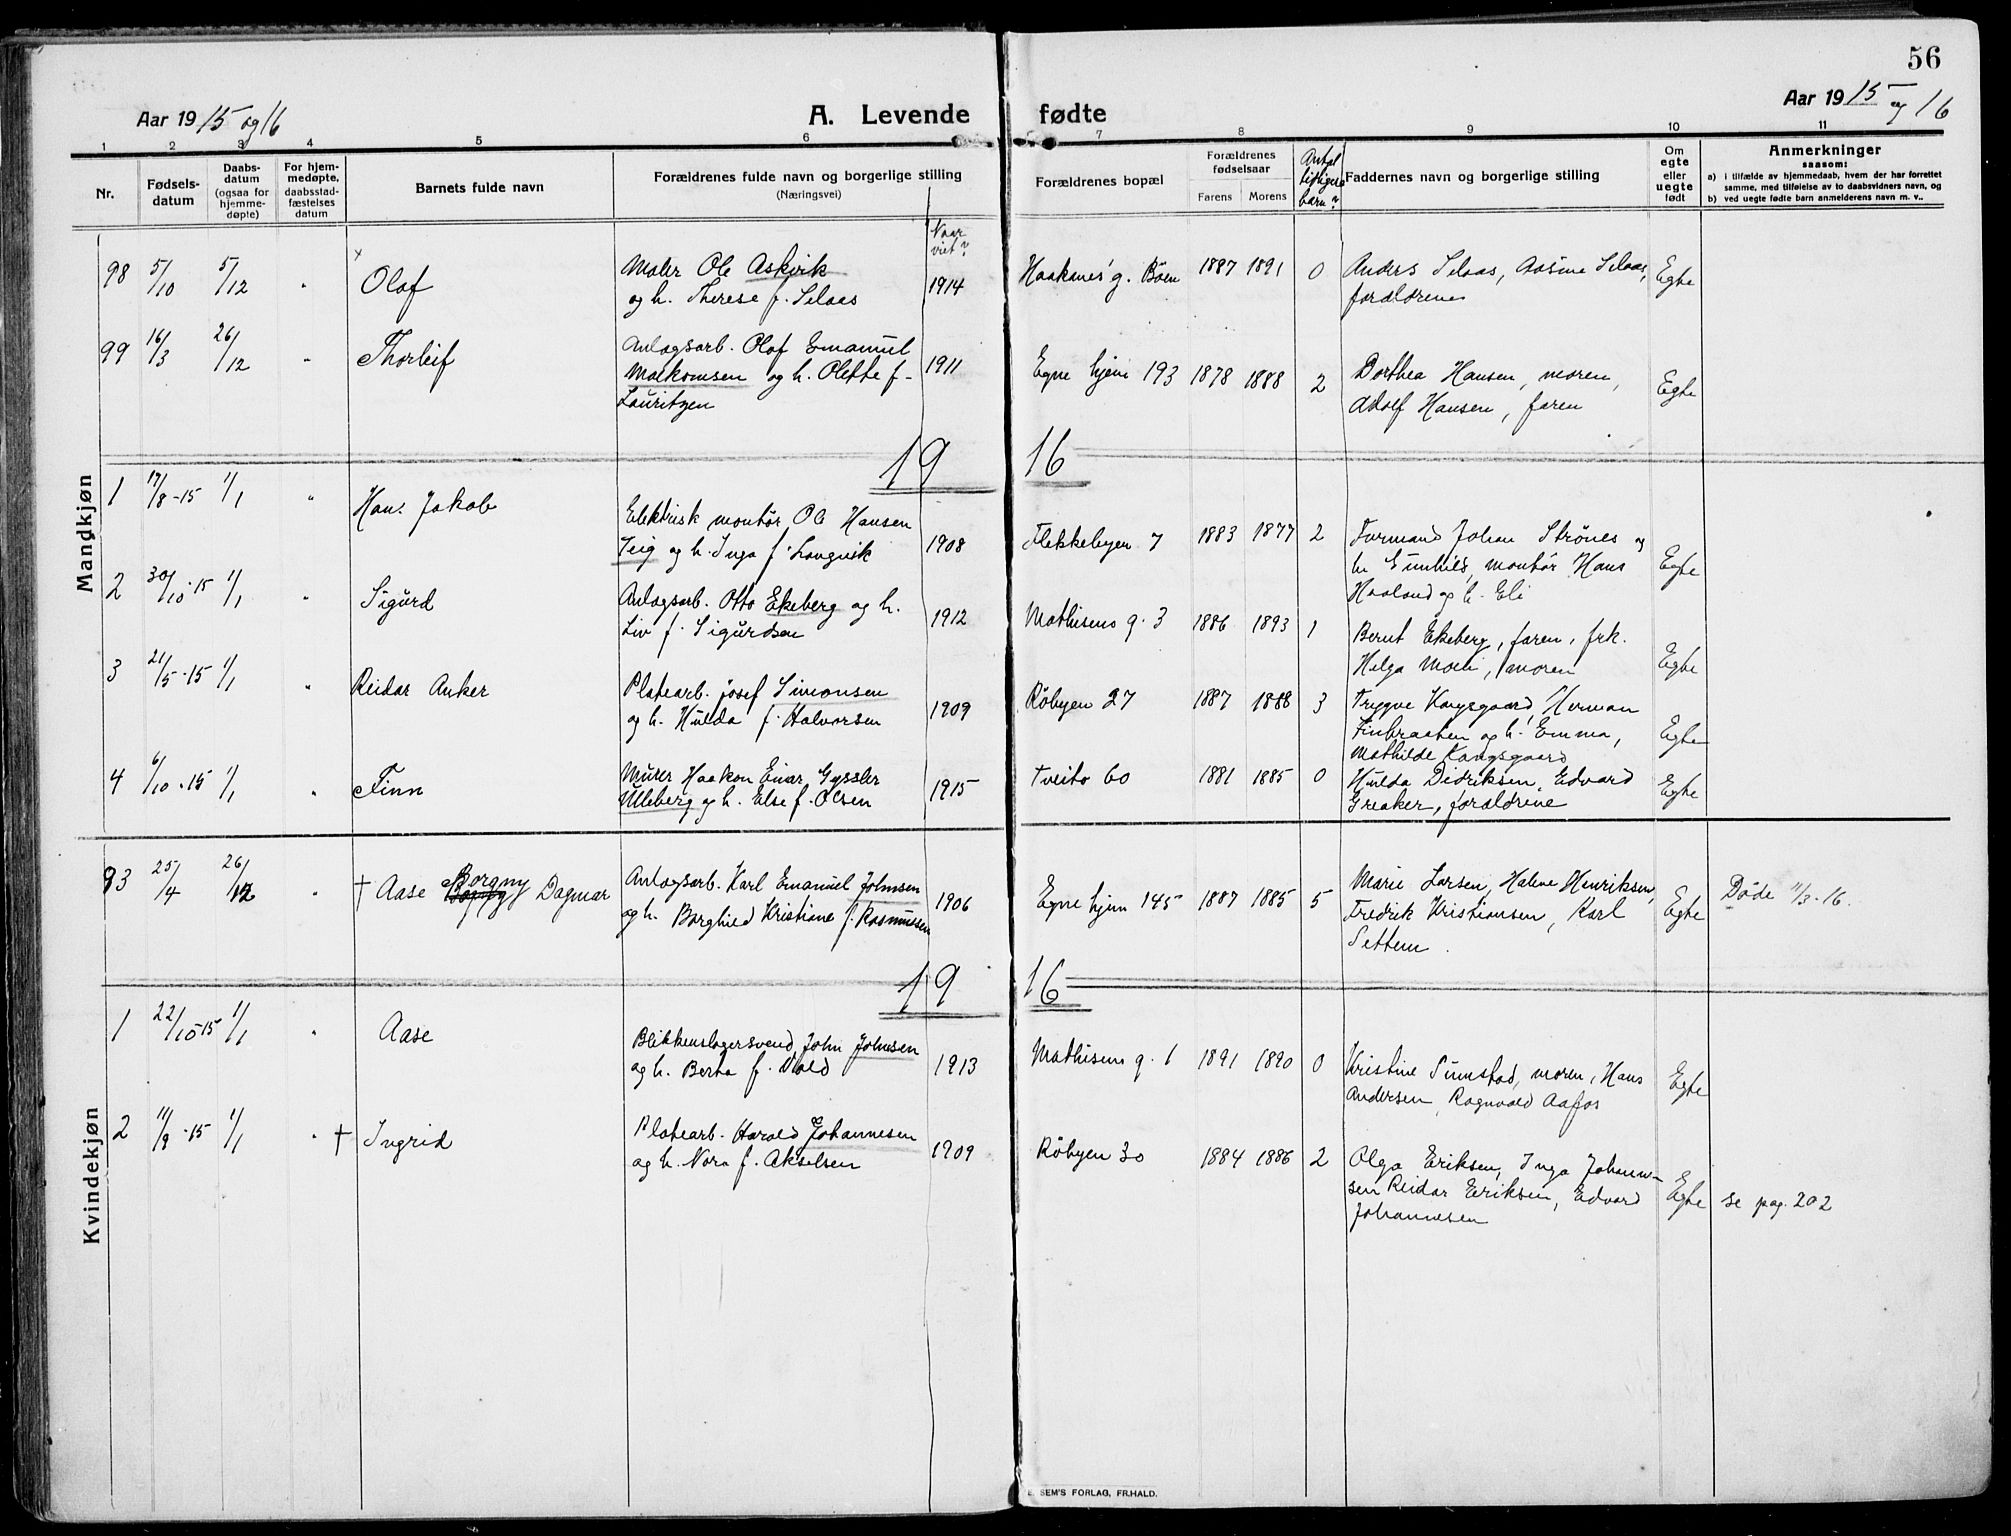 56
Aar 1915 og 16
A. Levende fødte
Aar 1915 og 16
1 2 3 4 5 6 7 8 9 10 11
Nr.
Fødsels-
datum
Daabs-
datum
(ogsaa for
hjemme-
døpte)
For hjem-
medøpte,
daabsstad-
fæstelses
datum
Barnets fulde navn
Forældrenes fulde navn og borgerlige stilling
(Næringsvei)
Naar
viet?
Forældrenes bopæl
Forældrenes
fødselsaar
Farens
Morens
Antal
barn?
Faddernes navn og borgerlige stilling
Om
egte
eller
uegte
født
Anmerkninger
saasom:
a) i tilfælde av hjemmedaab, hvem der har forrettet
samme, med tilføielse av to daabsvidners navn, og
b) ved uegte fødte barn anmelderens navn m. v..
Mandkjøn
98 5/10 5/12 " Olaf
Maler Ole Askvik
og h. Therese f. Selaas
1914
Haakanes g. Bøen 1887 1891 0
Anders Selaas, Aasine Selaas,
forældrene
Egte
99 16/3 26/12 " Thorleif
Anlægsarb. Olaf Emanuel
Malkomsen og h. Olette f.
Lauritzen
1911
Egne hjem 193 1878 1888 2
Dorthea Hansen, moren,
Adolf Hansen, faren
Egte
19 16
1 17/8-15 1/1 " Hans Jakob
Elektrisk montør Ole Hansen
Teig og h. Inga f. Langvik
1908
Flekkebyen 7 1883 1877 2
Formand Johan Strønes og
h. Gunhild, montør Hans
Haaland og h. Eli
Egte
2 30/10-15 1/1 Sigurd
Anlægsarb. Otto Ekeberg og h.
Liv f. Sigurdsen
1912
Mathisens g. 3 1886 1893 1
Bernt Ekeberg, faren, frk.
Helga Moen, moren
Egte
3 21/5-15 1/1 " Reidar Anker
Platearb. Josef Simonsen
og h. Hulda f. Halvorsen
1909
Røbyen 27 1887 1888 3
Trygve Kongsgaard, Herman
Finbraaten og h. Emma,
Mathilde Kongsgaard
Egte
4 6/10-15 1/1 " Finn
Murer Haakon Einar Gyssler
Ulleberg og h. Else f. Olsen
1915
Tveito 60 1881 1885 0
Hulda Didriksen, Edvard
Greaker, forældrene
Egte
93 25/4 26/12 " † Aase Borgny Dagmar
Anlægsarb. Karl Emanuel Johnsen
og h. Borghild Kristiane f. Rasmussen
1906
Egne hjem 145 1887 1885 5
Marie Larsen, Halene Henriksen,
Fredrik Kristiansen, Karl
Settem.
Egte
Døde 11/3-16.
19 16
Kvindekjøn
1 22/10-15 1/1 " Aase
Blikkenslagersvend John Johnsen
og h. Berta f. Vold
1913
Mathisens g. 1 1891 1890 0
Kristine Sunnstad, moren, Hans
Andersen, Ragnvald Aafos
Egte
2 11/9-15 1/1 " † Ingrid
Platearb. Harald Johannesen
og h. Nora f. Akselsen
1909
Røbyen 30 1884 1886 2
Olga Eriksen, Inga Johanne-
sen Reidar Eriksen, Edvard
Johannesen
Egte
se pag. 202
SEM'S FORLAG, FR.HALD.